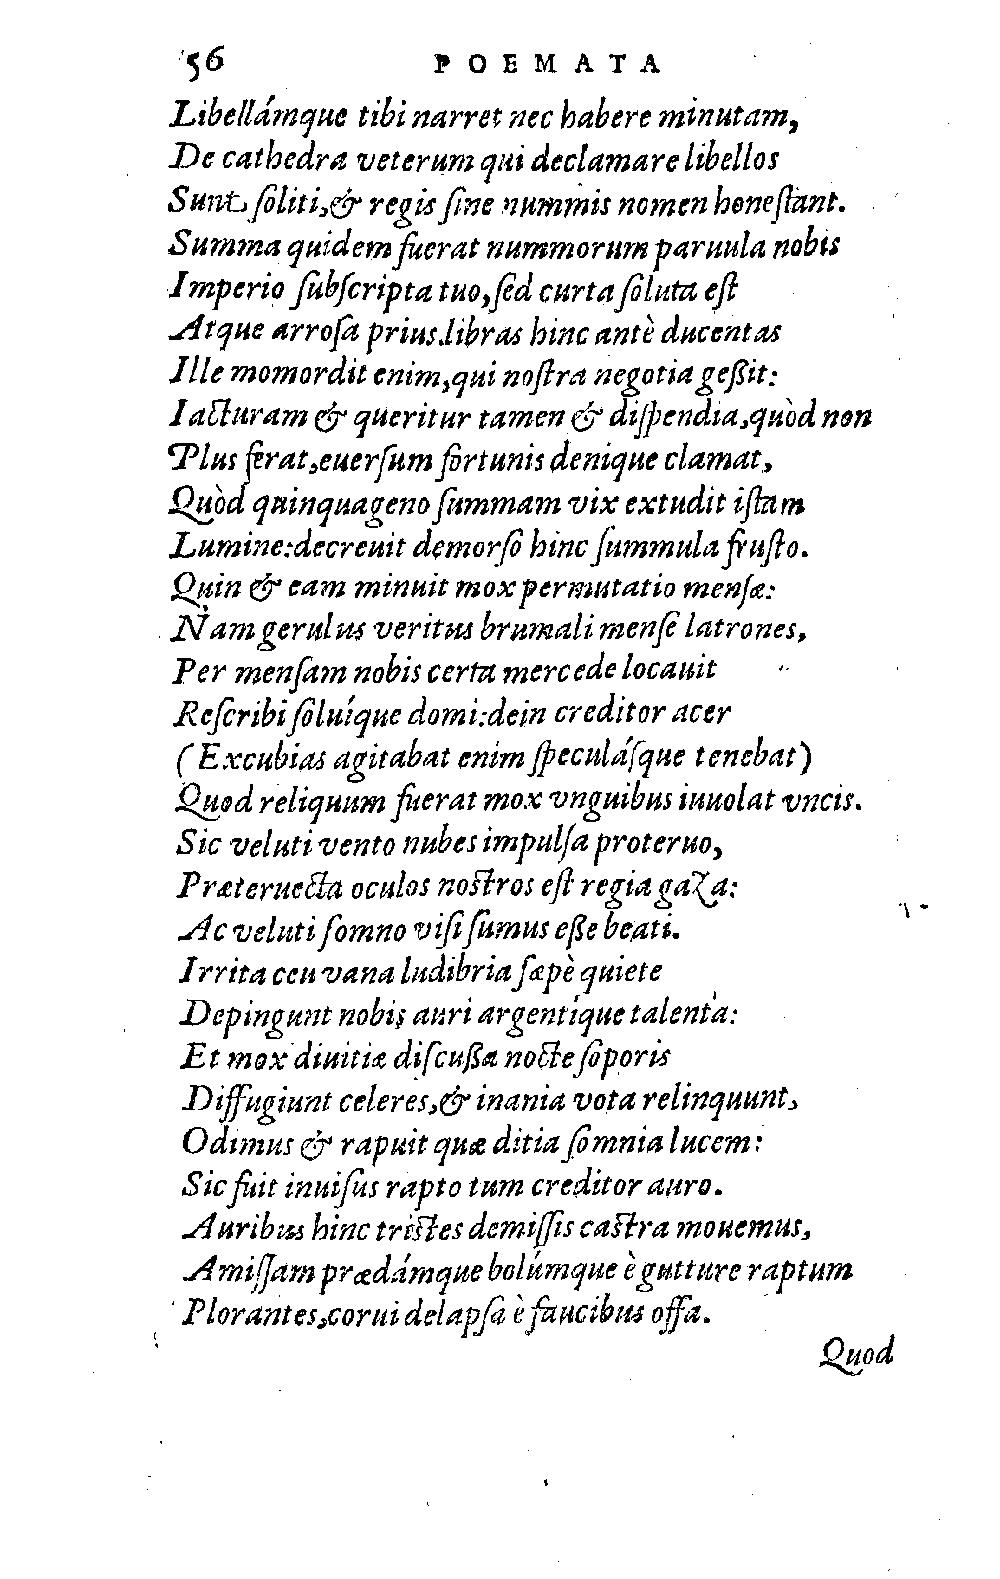 56 POEMATA
Libellámque tibi narret nec habere minutam,
De cathedra veterum qui declamare libellos
Sunt ſoliti,& regis ſine nummis nomen honeſtant.
Summa quidem fuerat nummorum paruula nobis
Imperio ſubſcripta tuo,ſed curta ſoluta eſt
Atque arroſa prius.libras hinc antè ducentas
Ille momordit enim,qui noſtra negotia geßit:
Iacturam & queritur tamen & diſpendia,quòd non
Plus ferat,euerſum fortunis denique clamat,
Quòd quinquageno ſummam vix extudit iſtam
Lumine:decreuit demorſo hinc ſummula fruſto.
Quin & eam minuit mox permutatio menſæ:
Nam gerulus veritus brumali menſe latrones,
Per menſam nobis certa mercede locauit
Reſcribi ſoluíque domi:dein creditor acer
(Excubias agitabat enim ſpeculáſque tenebat)
Quod reliquum fuerat mox vnguibus iuuolat vncis.
Sic veluti vento nubes impulſa proteruo,
Præteruecta oculos nostros eſt regia gaza:
Ac veluti ſomno viſi ſumus eße beati.
Irrita ceu vana ludibria ſæpè quiete
Depingunt nobis auri argentíque talenta:
Et mox diuitiæ diſcußa nocte ſoporis
Diffugiunt celeres,& inania vota relinquunt,
Odimus & rapuit quæ ditia ſomnia lucem:
Sic fuit inuiſus rapto tum creditor auro.
Auribus hinc tristes demiſſis castra mouemus,
Amiſſam prædámque bolúmque è gutture raptum
Plorantes,corui delapſa è faucibus offa.
Quod